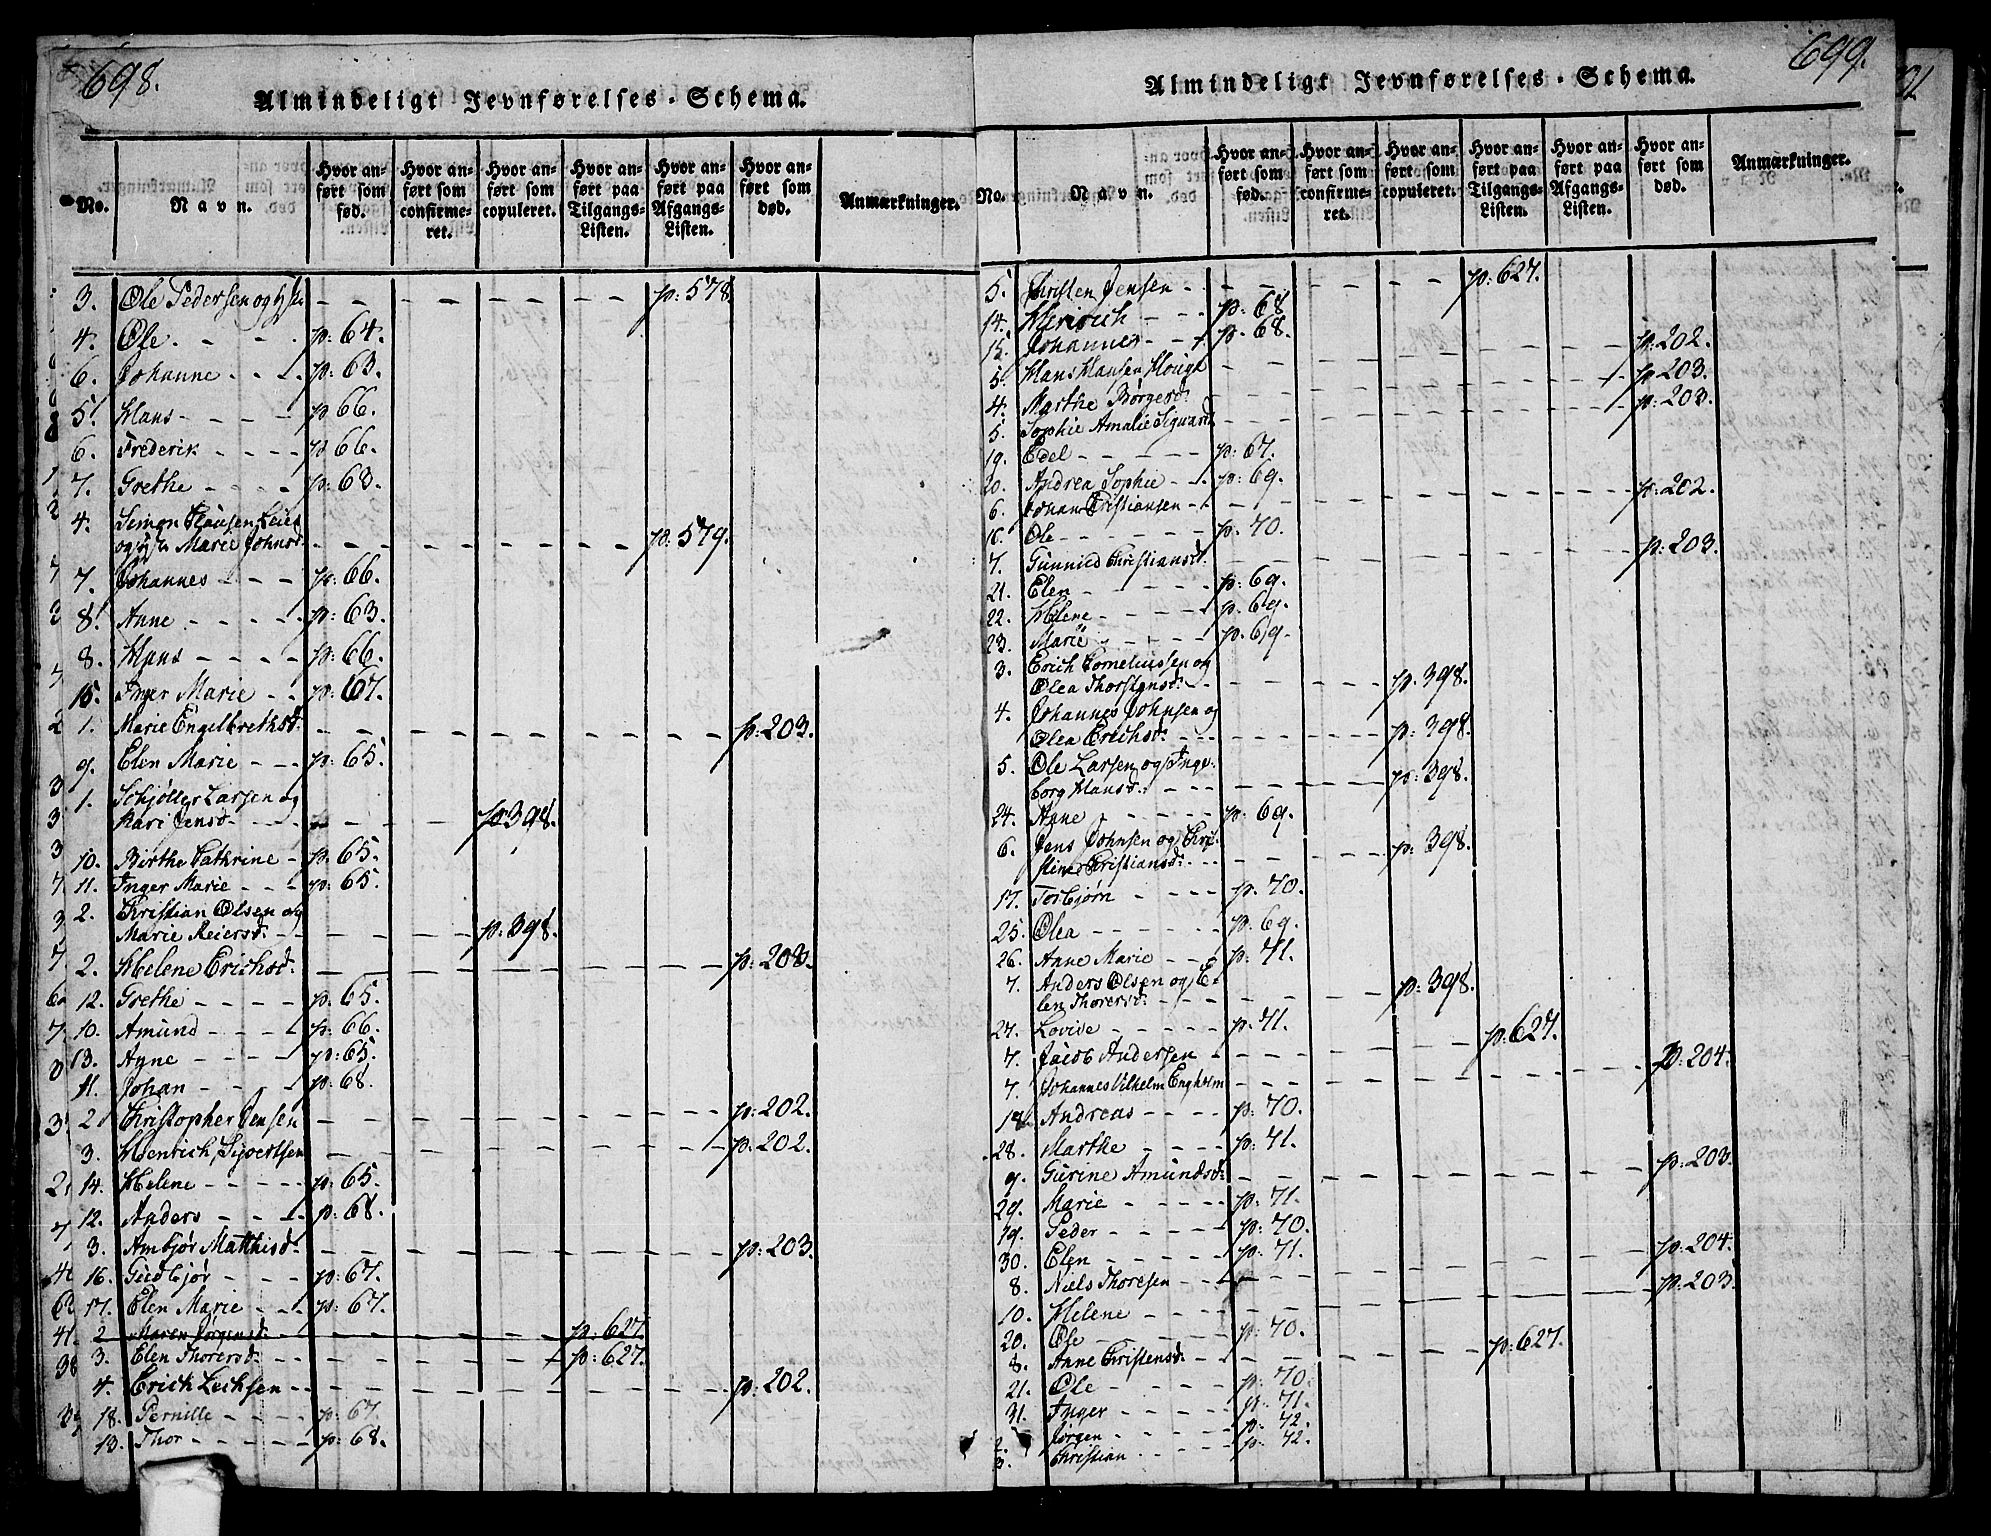 698.
Almindeligt Jevnførelses-Schema.
No.
Navn.
Hvor anført som fød.
Hvor anført som confirmeret.
Hvor anført som copuleret.
Hvor anført paa Tilgangs-Listen.
Hvor anført paa Afgangs-Listen.
Hvor anført som død.
Anmærkninger.
3. Ole Pedersen og p: 578.
4. Ole p: 64.
6. Johanne p: 63.
5. Hans p 66.
6. Frederik p 66.
7. Grethe p: 63.
4. Simon Clausen
Marie Johnsd. p: 579.
7. Johannes p: 66.
8. Anne p: 63.
8. Hans p: 66.
15. Inger Marie p: 67.
1. Marie Engelbrethsd. p: 203.
9. Elen Marie p: 65.
1. Schjøller Larsen og
Kari Jensd. p 398.
10. Birthe Cathrine p: 65.
11. Inger Marie p: 65.
2. Christian Olsen og
Marie Reiersd. p: 398.
2. Helene Erichsd. p: 203.
12. Grethe p: 65.
10. Amund p: 66.
13. Anne p: 65.
11. Johan p: 68.
2 Christopher Jensen p: 202.
3. Henrich Sivertsen p: 202.
14. Helene p: 65.
12. Anders p: 68.
3. Ambjør Matthisd. p: 203.
16. Gudbjør p: 67.
17. Elen Marie p: 67.
2 Maren Jørgensd. p: 627.
3. Elen Thorersd. p: 627.
4. Erich p: 202.
18. Pernille p: 67.
13. Thor p: 68.
699.
Almindeligt Jevnførelses-Schema.
No.
Navn.
Hvor anført som fød.
Hvor anført som confirmeret.
Hvor anført som copuleret.
Hvor anført paa Tilgangs-Listen.
Hvor anført paa Afgangs-Listen.
Hvor anført som død.
Anmærkninger.
5. Christen Jensen p: 627.
14. Henrich p: 68
15. Johannes p: 68.
5. Hans Hansen p: 202.
4. Marthe Børgesd. p: 203.
5. Sophie Amalie p: 203.
19. Edel p: 67.
20. Andrea Sophie p: 69.
6. Johan Christiansen p: 202.
16. Ole p: 70.
7. Gunnild Christiansd. p: 203.
21. Elen p: 69.
22. Helene p: 69.
23. Marie p: 69.
3. Erich Corneliussen og
Olea Thorstensd. p: 398.
4. Johannes Johnsen og
Olea Erichsd. p: 398.
5. Ole Larsen og Inge-
borg Hansd. p: 398.
24. Anne p: 69.
6. Jens Johnsen og Chri-
stine Christiansd. p: 398.
17. Torbjørn p. 70.
25. Olea p: 69.
26. Anne Marie p: 71.
7. Anders Olsen og E-
len Thorersd. p: 398.
27. Lovise p: 71.
7. Jacob Andersen p: 627.
7. Johannes Vilhelm Engholm p: 204.
18. Andreas p: 70.
28. Marthe p: 71.
9. Gurine Amundsd. p: 203.
29. Marie p: 71.
19. Peder p: 70.
30. Elen p: 71.
8. Niels Thoresen p: 204.
10. Helene p: 203.
20. Ole p: 70.
8. Anne Christensd. p: 627.
21. Ole p: 70.
31. Inger p: 71.
2. Jørgen p: 72.
3. Christian p: 72.